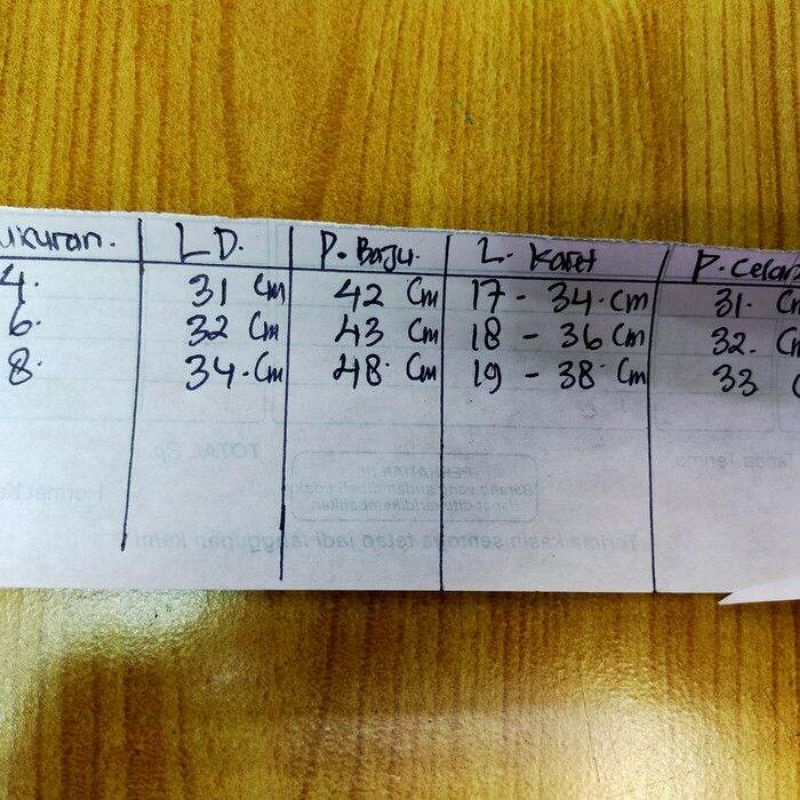 ukuran. LD. P. Baju. L. Karet P. Celan
4. 31 Cm 42 Cm 17 - 34. Cm 31. Cm
6. 32 Cm 43 Cm 18 - 36 Cm 32. Cm
8. 34. Cm 48. Cm 19 - 38 Cm 33 C
TOTAL Rp.
Tanda Terima
PERHATIAN !!!
Barang yang sudah dibeli tidak
dapat ditukar/dikembalikan
Hormat Ka
Terima kasih semoga tetap jadi langganan kami